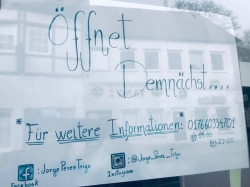 Öffnet
Demnächst....
*Für weitere Informationen: 017660334701
ab 14:00
bis 22:00
: Jorge Perez Trigo
: @Jorge_Perez_Trigo
Facebook
Instagram